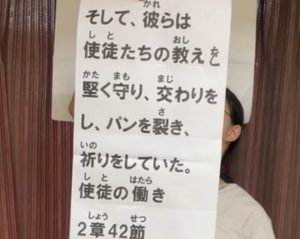 そして、彼らは
使徒たちの教えを
堅く守り、交わりを
し、パンを裂き、
祈りをしていた。
使徒の働き
2章42節